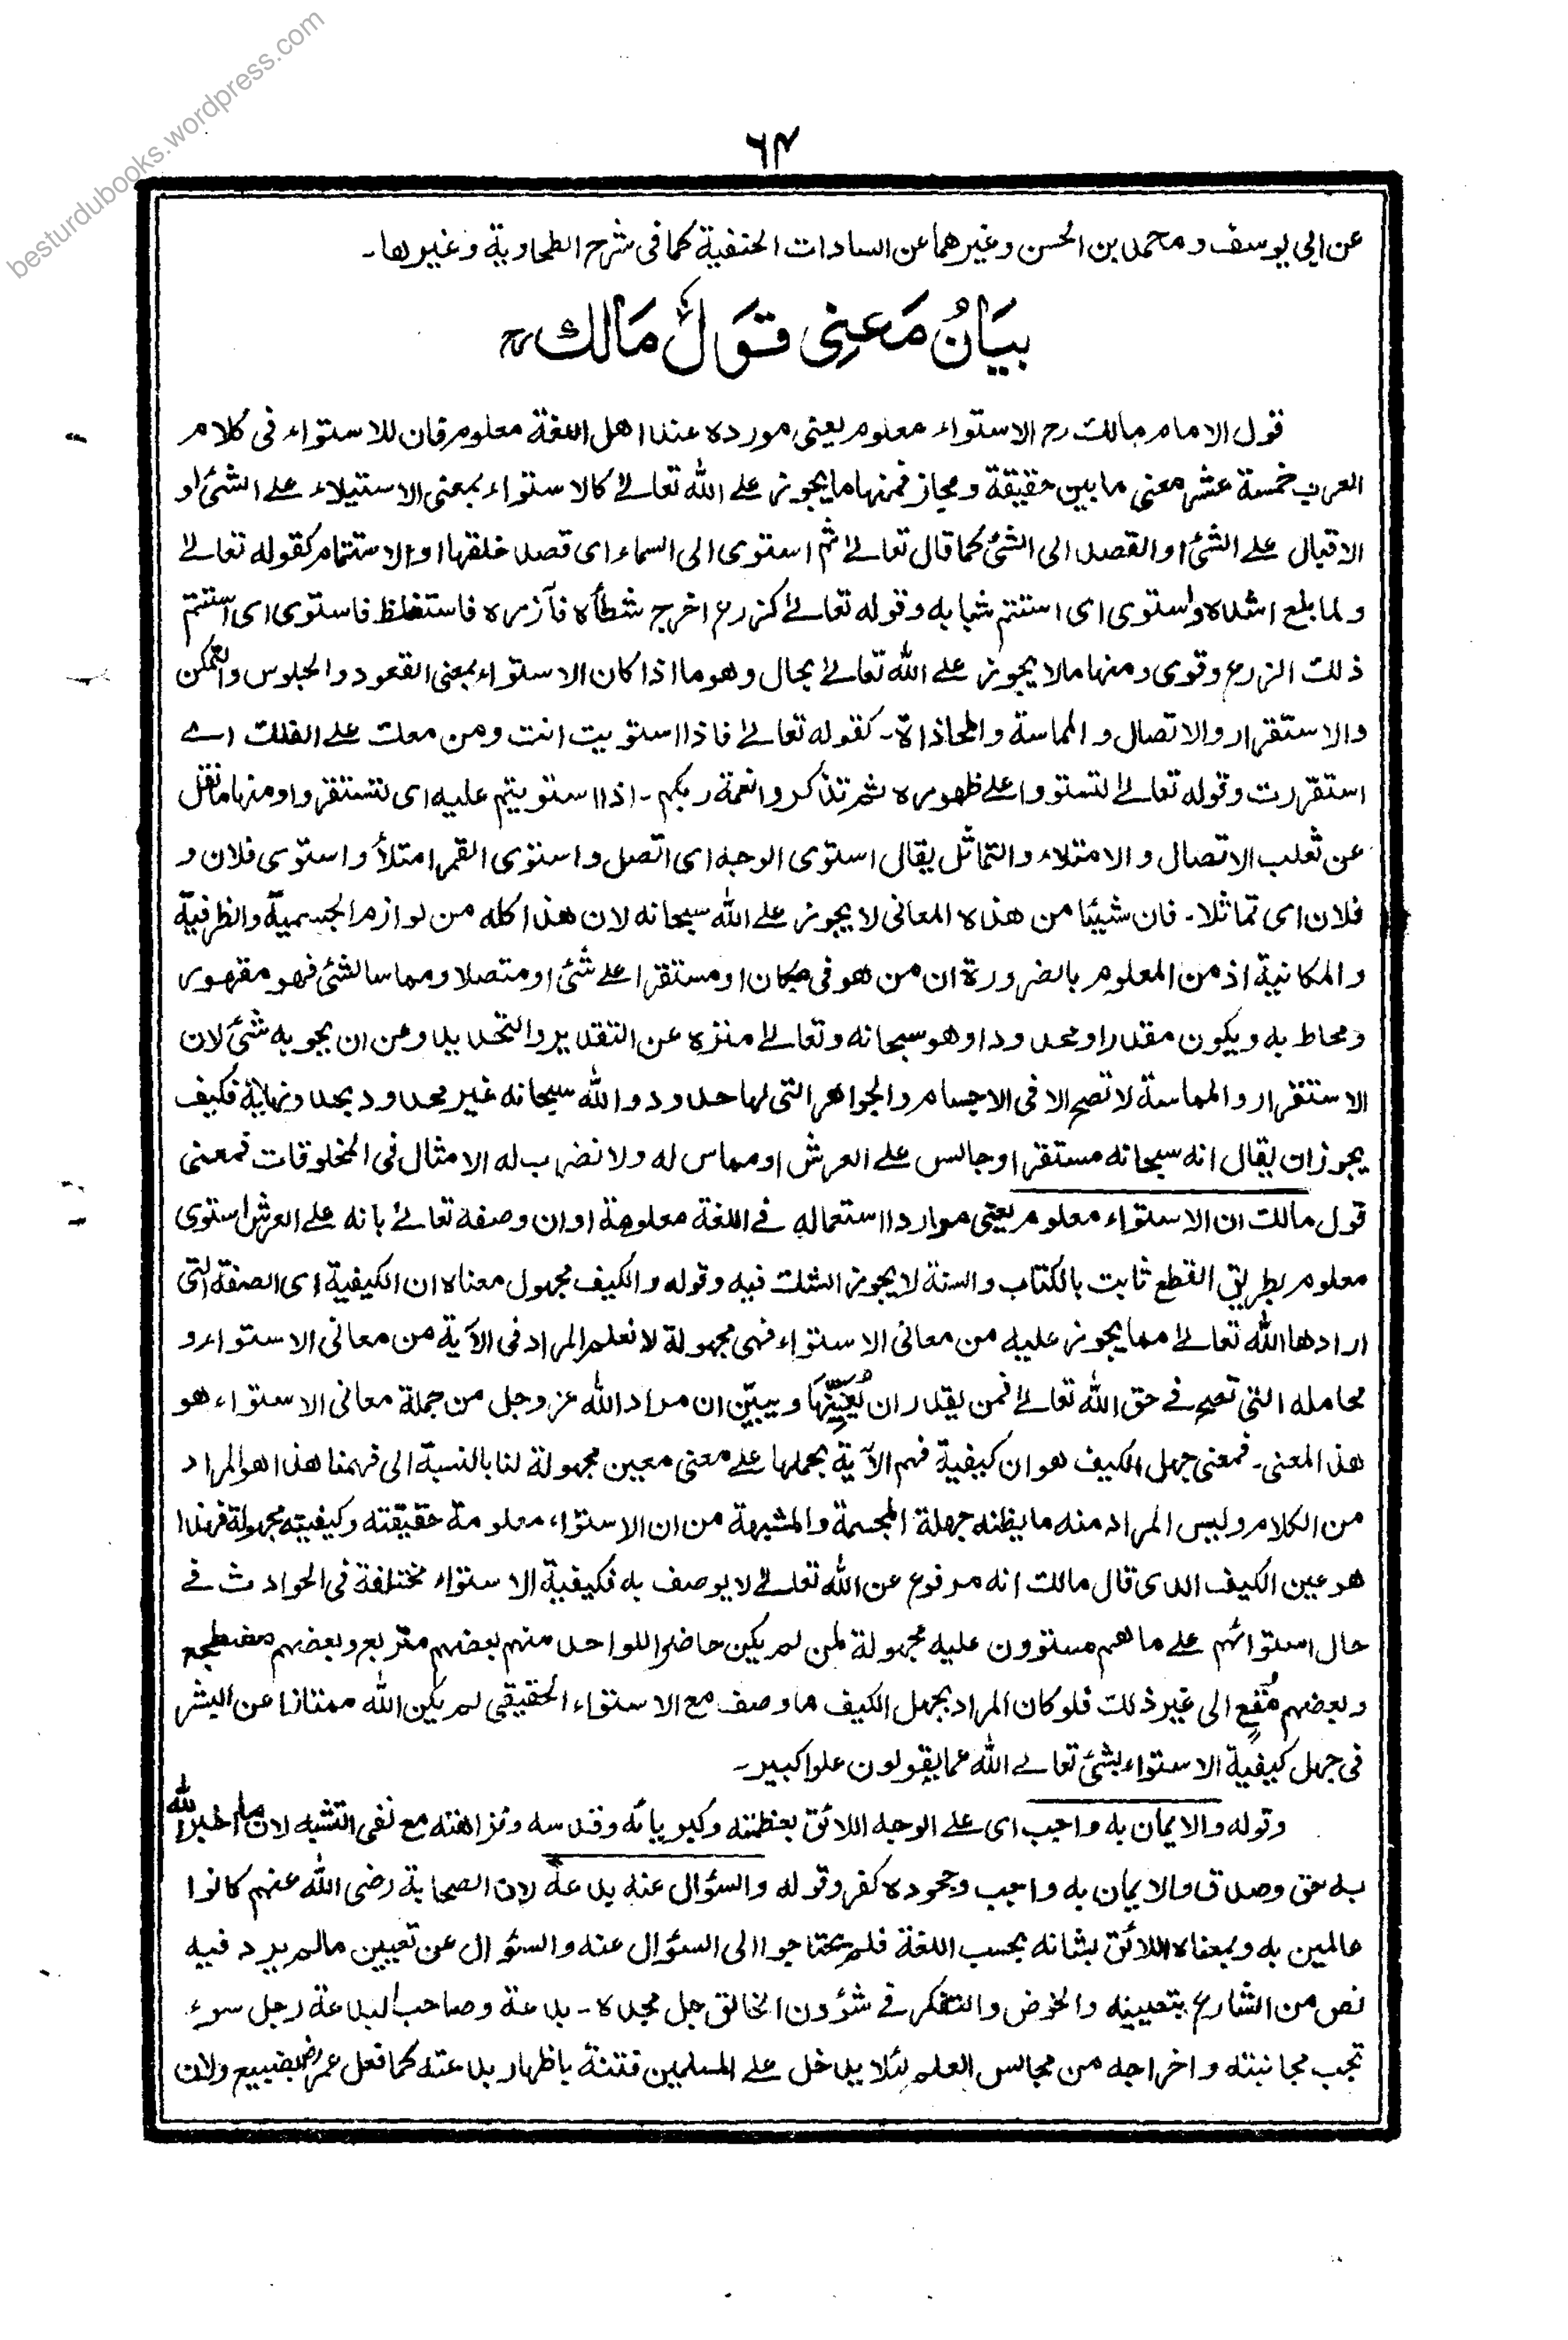 besturdubooks.wordpress.com
۶۴
عن ابی یوسف و محمد بن الحسن و غیرهما عن السادات الحنفیة کما فی شرح الطحاویة و غیرها۔
بَیَانُ مَعنٰی قَوَل مَالكؒ
قول الامام مالك رح الاستواء معلوم یعنی مورده عند اهل اللغة معلوم فان للاستواء فی کلام
العرب خمسة عشر معنی ما بین حقیقة و مجاز فمنها ما یجوز علے الله تعالےٰ کالاستواء بمعنی الاستیلاء علے الشئ او
الاقبال علے الشئ او القصد الی الشئ کما قال تعالےٰ ثم استوی الی السماء ای قصد خلقها او الاستتمام کقوله تعالےٰ
و لما بلغ اشده و استوی ای استتم شبابه و قوله تعالےٰ کزرع اخرج شطأه فآزره فاستغلظ فاستوی ای استتم
ذلك الزرع و قوی و منها ما لا یجوز علے الله تعالےٰ بحال و هو ما اذا کان الاستواء بمعنی القعود و الجلوس و التمکن
و الاستقرار و الاتصال و المماسة و المحاذاة۔ کقوله تعالےٰ فاذا استویت انت و من معك علے الفلك اے
استقررت و قوله تعالےٰ لتستووا علے ظهوره ثم تذکروا نعمة ربکم۔ اذا استویتم علیه ای لتستقروا و منها ما نقل
عن ثعلب الاتصال و الامتلاء و التماثل یقال استوی الوجه ای اتصل و استوی القمر امتلأ و استوی فلان و
فلان ای تماثلا۔ فان شیئا من هذه المعانی لا یجوز علے الله سبحانه لان هذا کله من لوازم الجسمیة و الظرفیة
و المکانیة اذ من المعلوم بالضرورة ان من هو فی مکان او مستقرا علے شئ او متصلا و مماسا لشئ فهو مقهور
و محاط به و یکون مقدرا و محدودا و هو سبحانه و تعالےٰ منزه عن التقدیر و التحدید و عن ان یحویه شئ لان
الاستقرار و المماسة لا تصح الا فی الاجسام و الجواهر التی لها حدود و الله سبحانه غیر محدود بحد و نهایة فکیف
یجوز ان یقال انه سبحانه مستقر او جالس علے العرش او مماس له و لا نضرب له الامثال فی المخلوقات فمعنی
قول مالك ان الاستواء معلوم یعنی موارد استعماله فے اللغة معلومة او ان وصفه تعالےٰ بانه علے العرش استوی
معلوم بطریق القطع ثابت بالکتاب و السنة لا یجوز الشك فیه و قوله و الکیف مجهول معناه ان الکیفیة ای الصفة التی
ارادها الله تعالےٰ مما یجوز علیه من معانی الاستواء فهی مجهولة لا نعلم المراد فی الآیة من معانی الاستواء و
محامله التی تصح فے حق الله تعالےٰ فمن یقدر ان یُعَیِّنَها و یبیّن ان مراد الله عز و جل من جملة معانی الاستواء هو
هذا المعنی۔ فمعنی جهل الکیف هو ان کیفیة فهم الآیة بحملها علے معنی معین مجهولة لنا بالنسبة الی فهمنا هذا هو المراد
من الکلام و لیس المراد منه ما یظنه جهلة المجسمة و المشبهة من ان الاستواء معلومة حقیقته و کیفیته مجهولة فهذا
هو عین الکیف الذی قال مالك انه مرفوع عن الله تعالےٰ لا یوصف به فکیفیة الاستواء مختلفة فی الحوادث فے
حال استوائهم علے ما هم مستوون علیه مجهولة لمن لم یکن حاضرا للواحد منهم بعضهم متربع و بعضهم مضطجع
و بعضهم مُقعٍ الی غیر ذلك فلو کان المراد بجهل الکیف ما وصف مع الاستواء الحقیقی لم یکن الله ممتازا عن البشر
فی جهل کیفیة الاستواء بشئ تعالے الله عما یقولون علوا کبیر۔
و قوله و الایمان به واجب ای علے الوجه اللائق بعظمته و کبریائه و قدسه و نزاهته مع نفی التشبه لان ما اخبر الله
به حق و صدق و الایمان به واجب و جحوده کفر و قوله و السؤال عنه بدعة لان الصحابة رضی الله عنهم کانوا
عالمین به و بمعناه اللائق بشانه بحسب اللغة فلم یحتاجوا الی السؤال عنه و السؤال عن تعیین ما لم یرد فیه
نص من الشارع بتعیینه و الخوض و التفکر فے شؤون الخالق جل مجده۔ بدعة و صاحب البدعة رجل سوء
تجب مجانبته و اخراجه من مجالس العلم لئلا یدخل علے المسلمین فتنة باظهار بدعته کما فعل عمرؓ بضبیع و لان